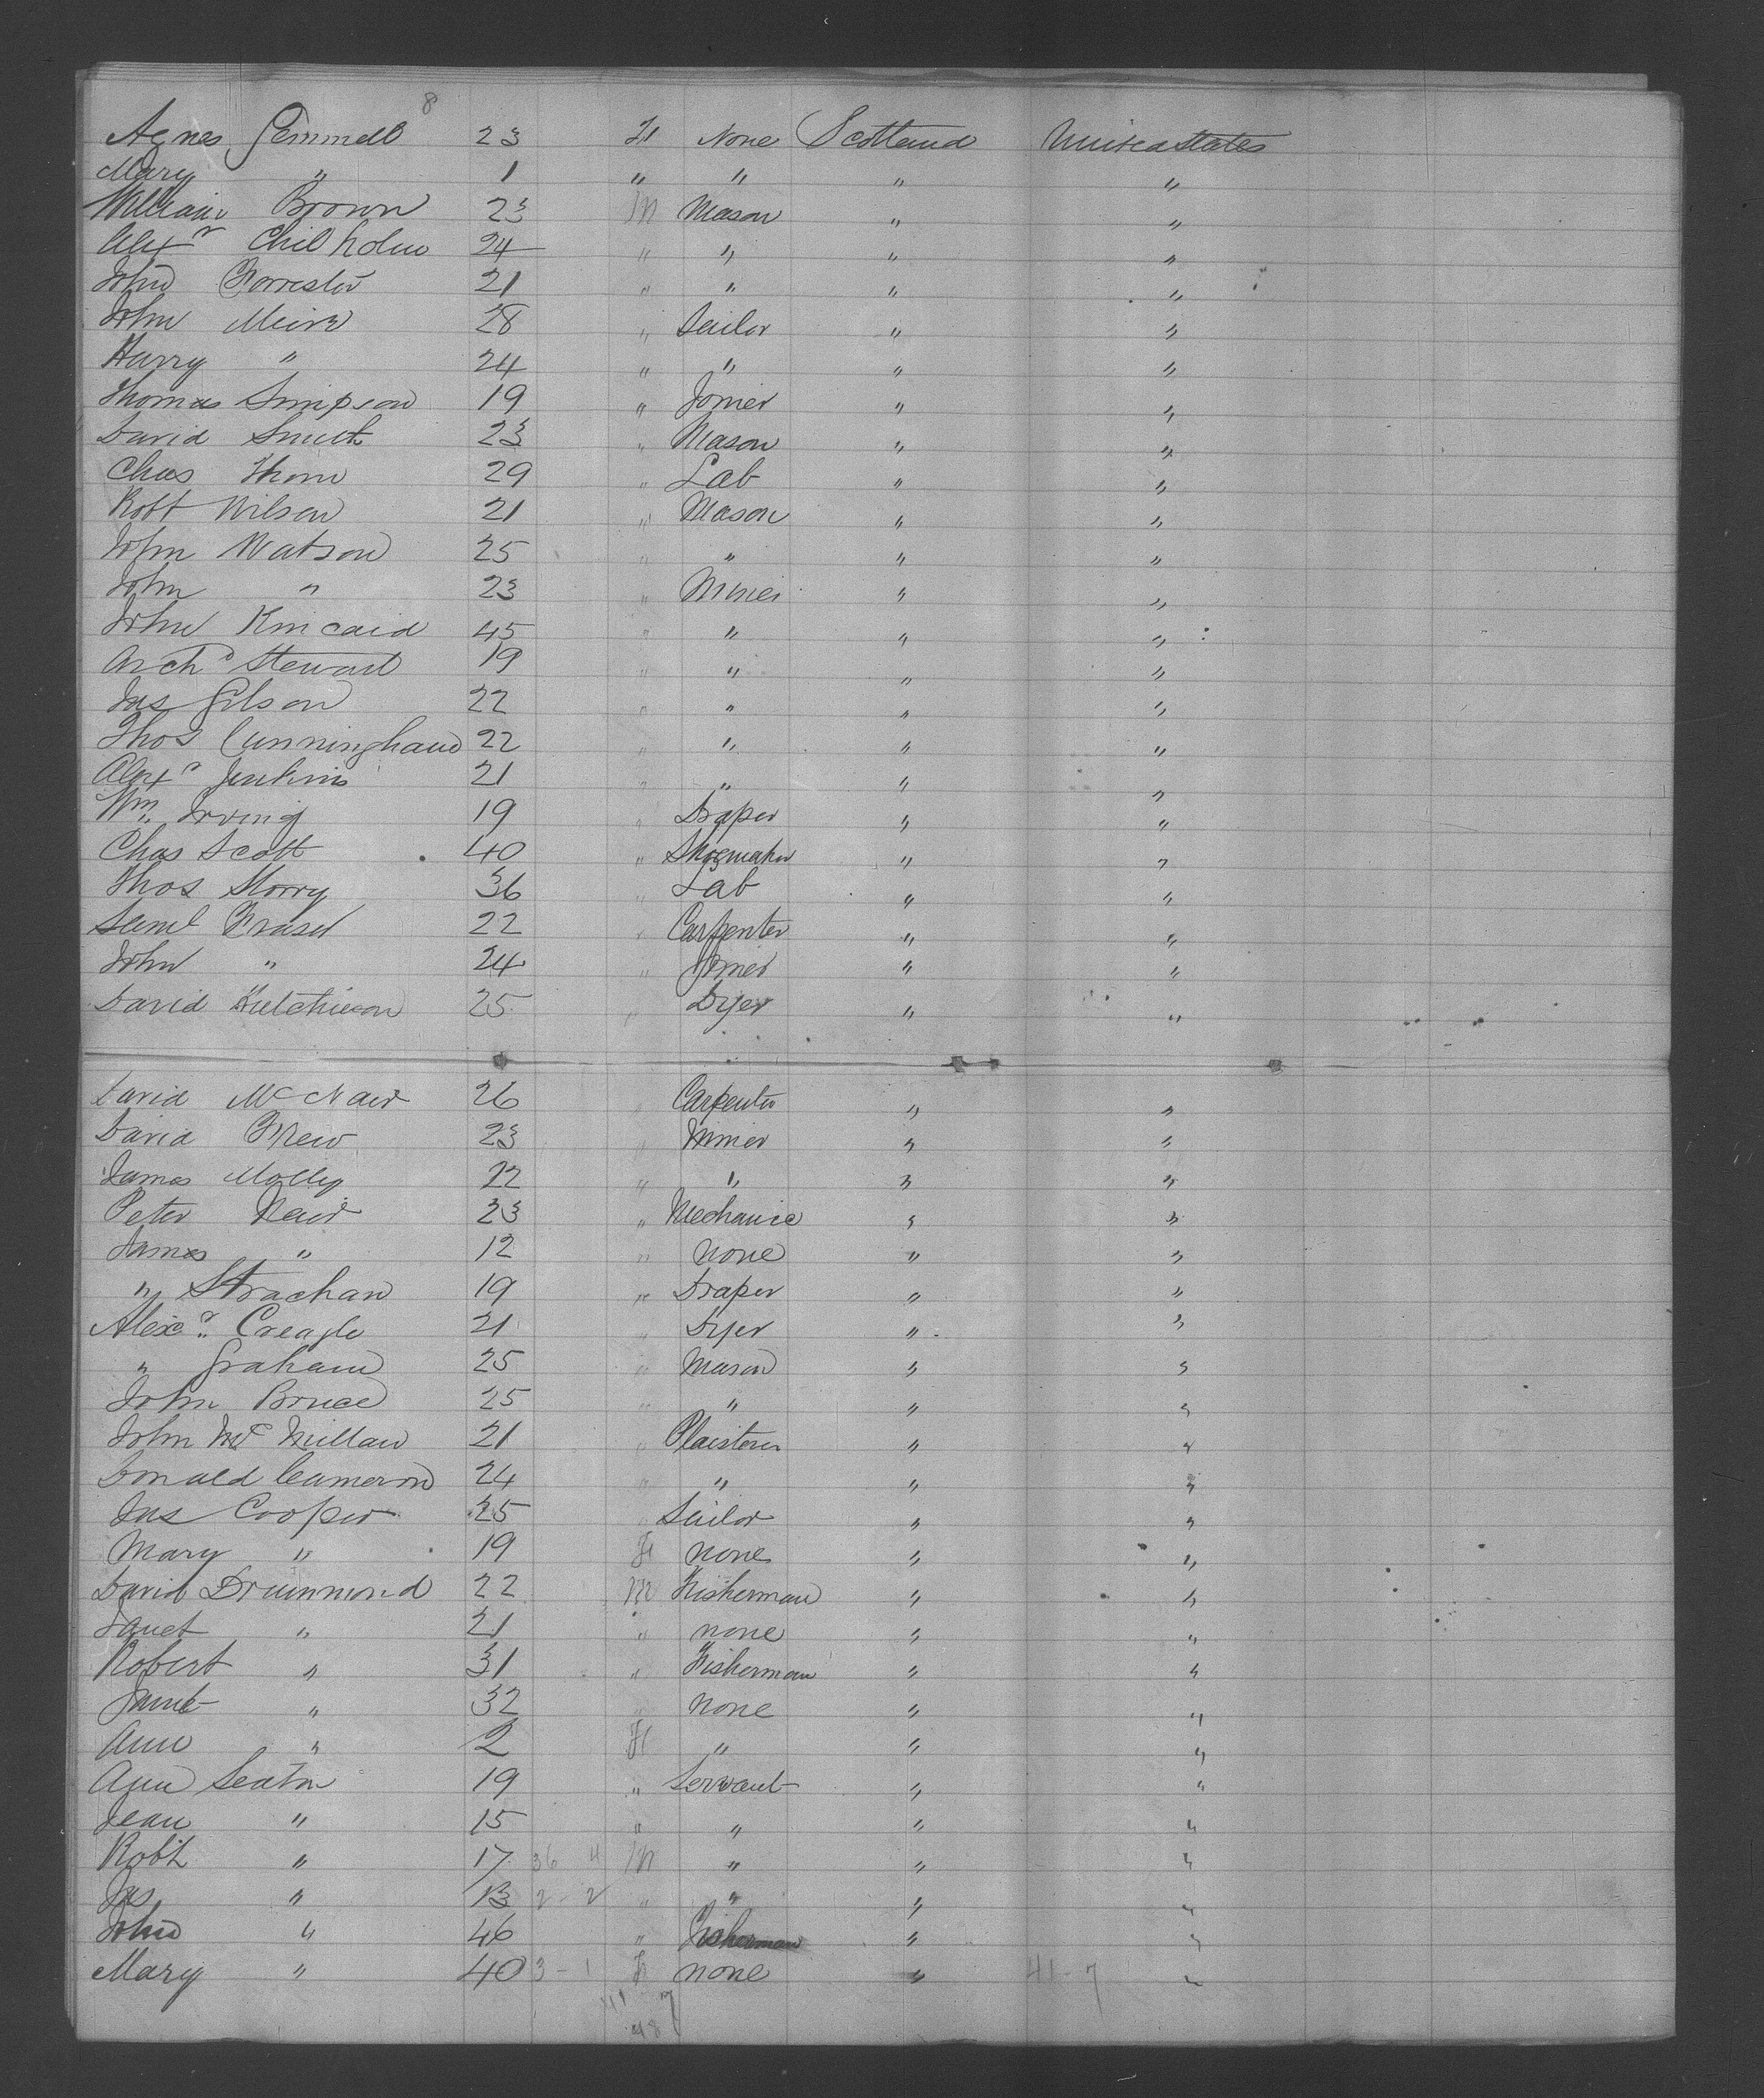 8
Agnes Gemmell 23 F None Scotland United States
Mary " 1 " " " "
William Brown 23 M Mason " "
Alexr Chilholm 24 " " " "
John Forrester 21 " " " "
John Meire 28 " Sailor " "
Harry " 24 " " " "
Thomas Simpson 19 " Joiner " "
David Smith 23 " Mason " "
Chas Thom 29 " Lab " "
Robt Wilson 21 " Mason " "
John Watson 25 " " " "
John " 23 " Miner " "
John Kincaid 45 " " " "
Archd Stewart 19 " " " "
Jas Gilson 22 " " " "
Thos Cunningham 22 " " " "
Alexr Jenkins 21 " " " "
Wm Irving 19 " Draper " "
Chas Scott 40 " Shoemaker " "
Thos Storry 36 " Lab " "
Saml Fraser 22 " Carpenter " "
John " 24 " Joiner " "
David Hutchieson 25 " Dyer " "
David McNair 26 " Carpenter " "
David Frew 23 " Miner " "
James Molly 22 " " " "
Peter Nair 23 " Mechanic " "
James " 12 " none " "
" Strachan 19 " Draper " "
Alexr Creagle 21 " Dyer " "
" Graham 25 " Mason " "
John Bruce 25 " " " "
John McMillan 21 " Plaisterer " "
Donald Cameron 24 " " " "
Jas Cooper 25 " Sailor " "
Mary " 19 F none " "
David Drummond 22 M Fisherman " "
Janet " 21 " none " "
Robert " 31 " Fisherman " "
Janet " 32 " none " "
Ann " 2 F " " "
Ann Seaton 19 " Servant " "
Jean " 15 " " " "
Robt " 17 36 4 M " " "
Jas " 13 2 - 2 " " " "
John " 46 " Fisherman " "
Mary " 40 3 - 1 F none " 41 - 7 "
41 7
48